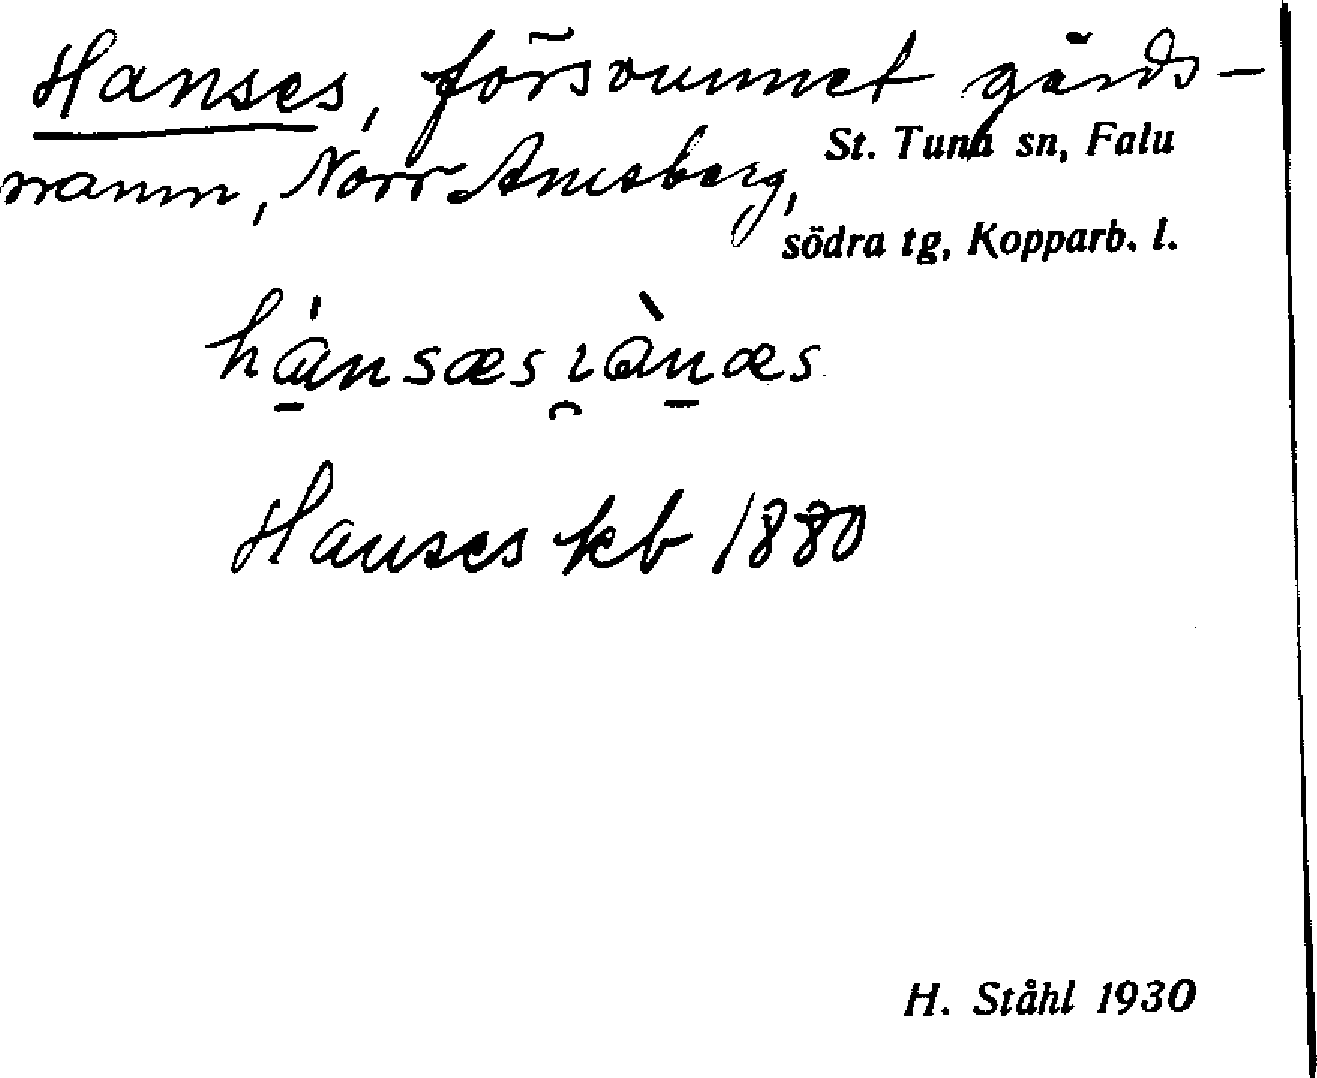 Hanses, försvunnet gårds-
namn, Norr Amsberg,
St. Tuna sn, Falu
södra tg, Kopparb. l.
hánsæs
Hanses kb 1880
H. Ståhl 1930